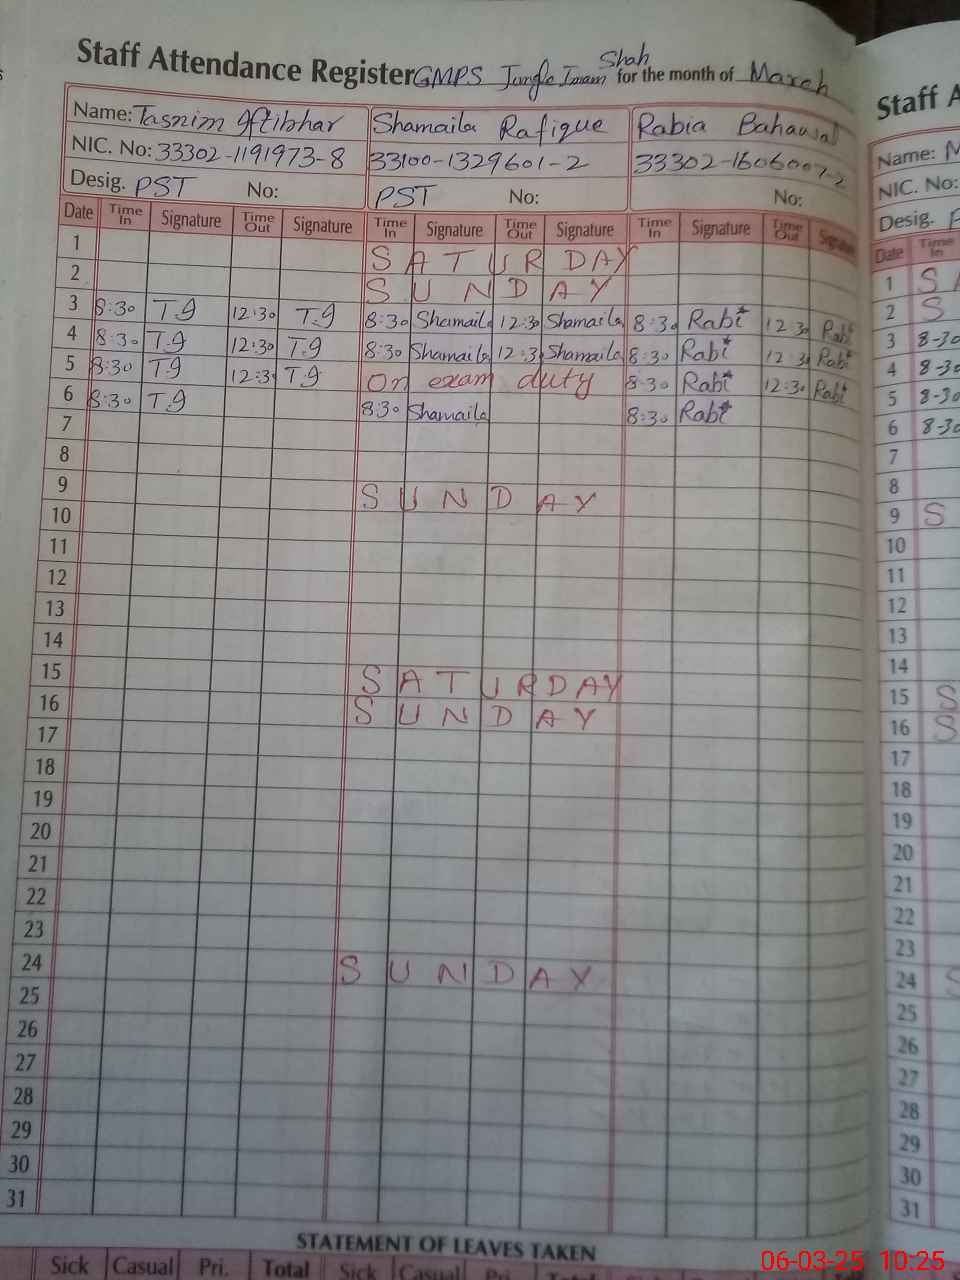 Staff Attendance Register GMPS Jungle Imam Shah for the month of March
Name: Tasnim Iftikhar Shamaila Rafique Rabia Bahawal
NIC. No: 33302-1191973-8 33100-1329601-2 33302-1606007-2
Desig. PST No: PST No: No:
Date Time In Signature Time Out Signature Time In Signature Time Out Signature Time In Signature Time Out Signature
1 SATURDAY
2 SUNDAY
3 8:30 T.I 12:30 T.I 8:30 Shamaila 12:30 Shamaila 8:30 Rabi 12:30 Rabi
4 8:30 T.I 12:30 T.I 8:30 Shamaila 12:30 Shamaila 8:30 Rabi 12:30 Rabi
5 8:30 T.I 12:30 T.I On exam duty 8:30 Rabi 12:30 Rabi
6 8:30 T.I 8:30 Shamaila 8:30 Rabi
7
8
9 SUNDAY
10
11
12
13
14
15 SATURDAY
16 SUNDAY
17
18
19
20
21
22
23
24 SUNDAY
25
26
27
28
29
30
31
STATEMENT OF LEAVES TAKEN
Sick Casual Pri. Total Sick Casual
Staff A
Name: M
NIC. No:
Desig. P
Date Time In
1 S A
2 S
3 8-30
4 8-30
5 8-30
6 8-30
7
8
9 S
10
11
12
13
14
15 S
16 S
17
18
19
20
21
22
23
24 S
25
26
27
28
29
30
31
06-03-25 10:25